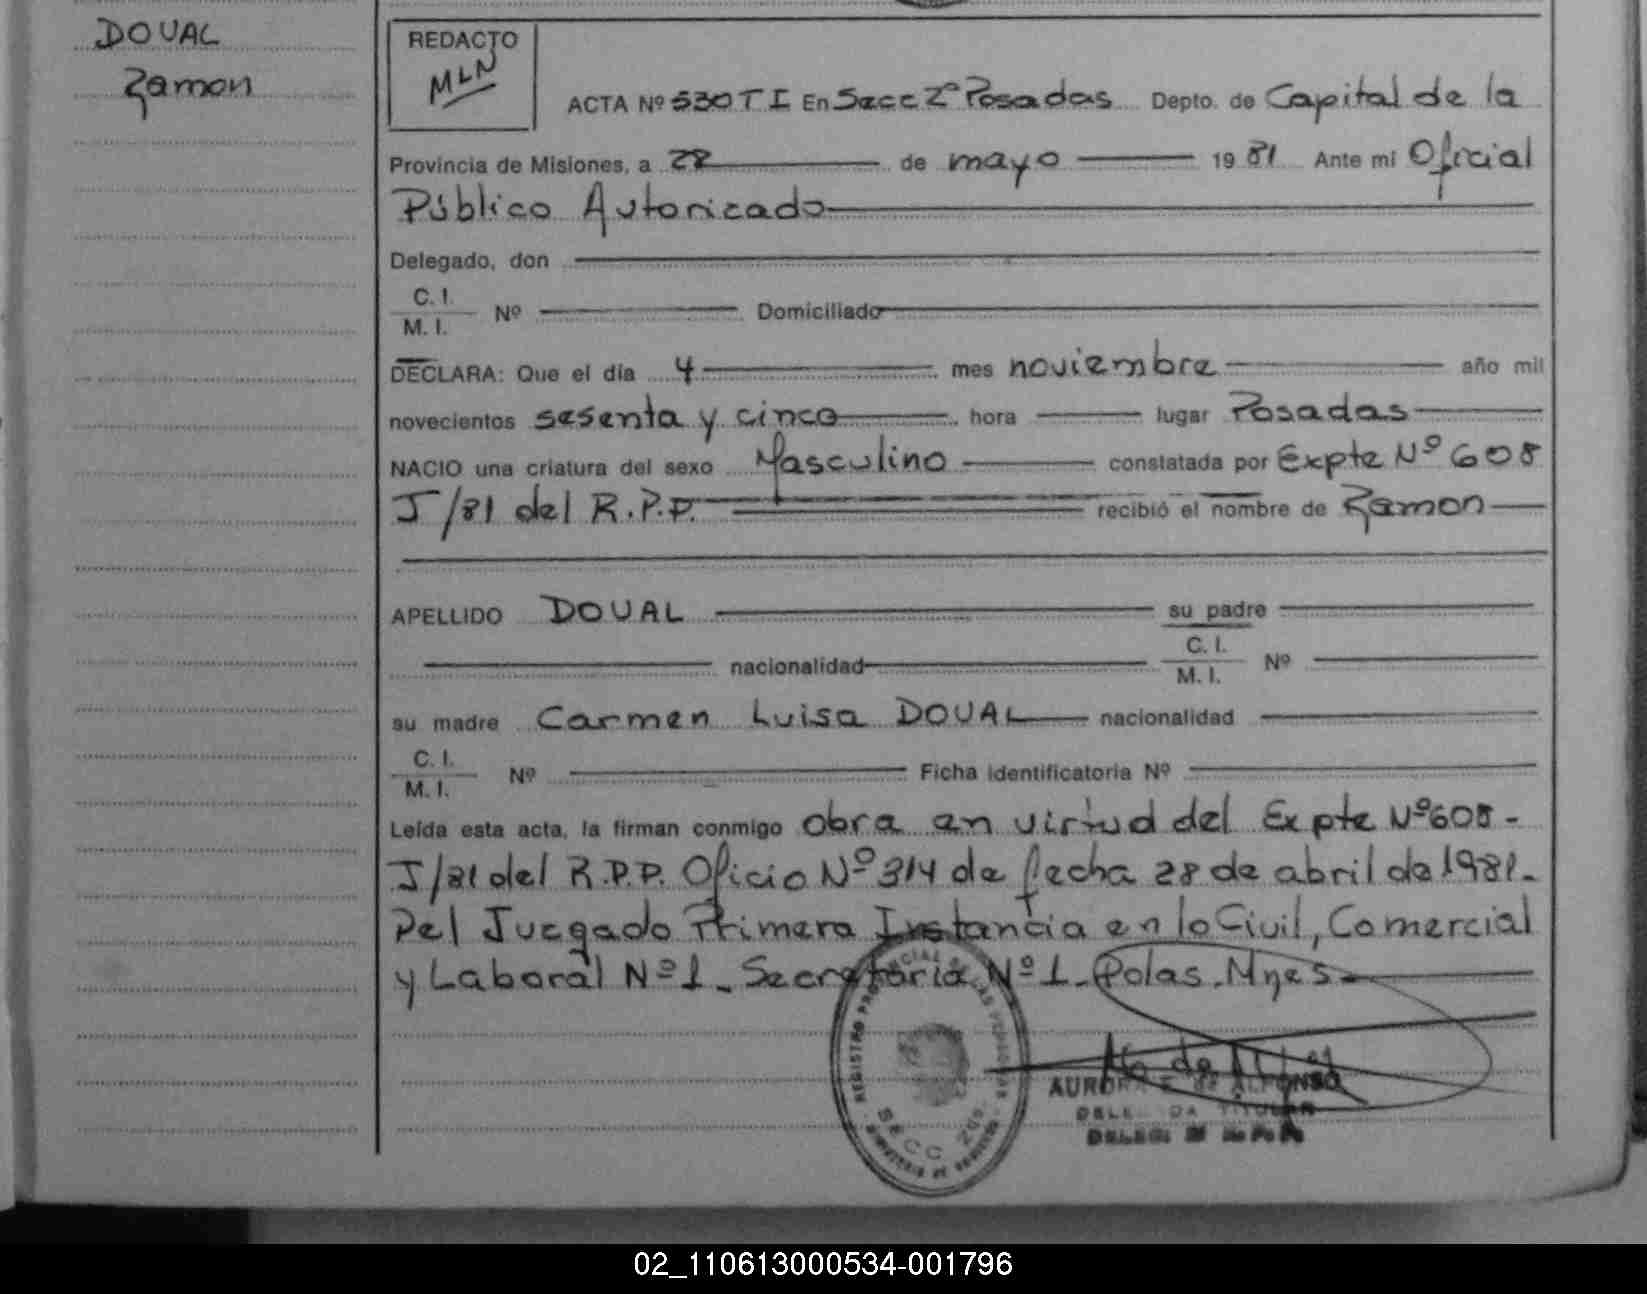 DOVAL
Ramon
REDACTO
MLN
ACTA Nº 530 T I En Secc 2º Posadas Depto. de Capital de la
Provincia de Misiones, a 22 de mayo 19 81 Ante mi Oficial
Público Autorizado
Delegado, don
C. I.
M. I. Nº Domiciliado
DECLARA: Que el día 4 mes noviembre año mil
novecientos sesenta y cinco hora lugar Posadas
NACIO una criatura del sexo Masculino constatada por Expte Nº 608
J/81 del R.P.P. recibió el nombre de Ramon
APELLIDO DOVAL su padre
nacionalidad C. I. M. I. Nº
su madre Carmen Luisa DOVAL nacionalidad
C. I.
M. I. Nº Ficha Identificatoria Nº
Leída esta acta, la firman conmigo obra en virtud del Expte Nº 608-
J/81 del R.P.P. Oficio Nº 314 de fecha 28 de abril de 1981.
Del Juzgado Primera Instancia en lo Civil, Comercial
y Laboral Nº 1_ Secretaria Nº 1_ Pdas. Mnes
REGISTRO PROVINCIAL DE LAS PERSONAS
SECC 2da.
AURORA ALFONSO
DELEGADA TITULAR
02_110613000534-001796